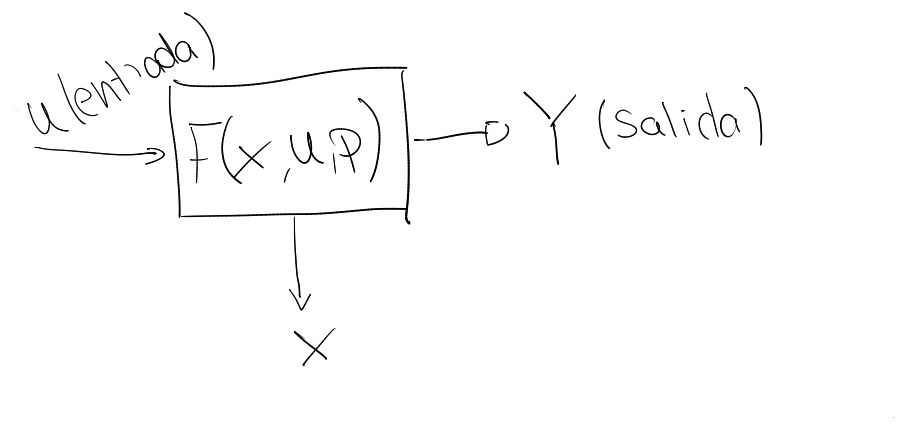 u(entrada)
F(x,u,p)
Y (salida)
x